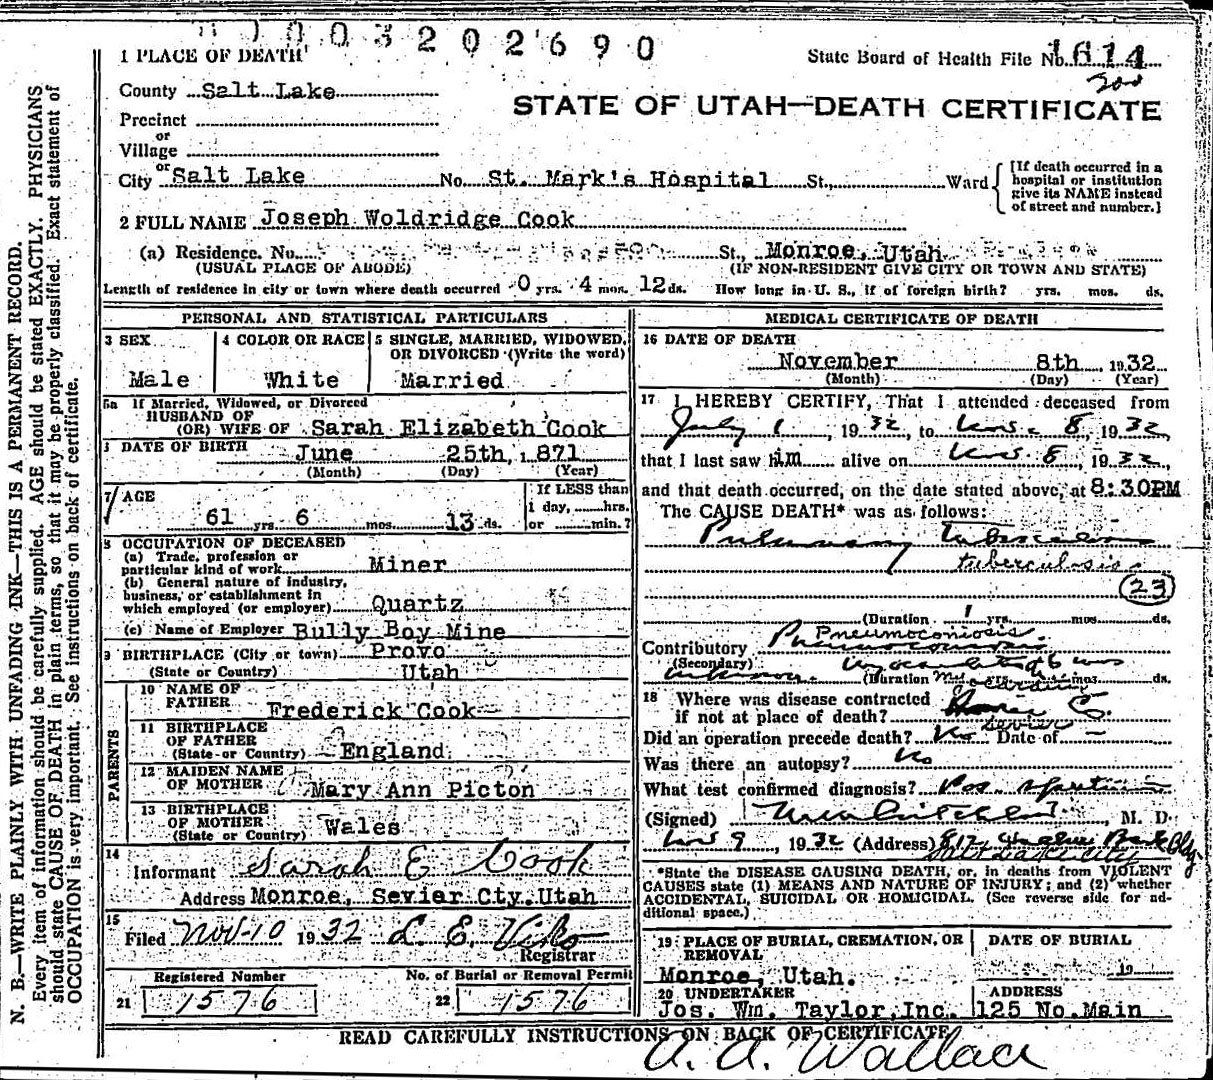 1003202690
1 PLACE OF DEATH
State Board of Health File No. 1614
County Salt Lake
200
STATE OF UTAH—DEATH CERTIFICATE
Precinct
or
Village
or
City Salt Lake No. St. Mark's Hospital St., Ward
[If death occurred in a hospital or institution give its NAME instead of street and number.]
2 FULL NAME Joseph Woldridge Cook
(a) Residence. No. St., Monroe, Utah
(USUAL PLACE OF ABODE) (IF NON-RESIDENT GIVE CITY OR TOWN AND STATE)
Length of residence in city or town where death occurred 0 yrs. 4 mos. 12 ds. How long in U. S., if of foreign birth? yrs. mos. ds.
PERSONAL AND STATISTICAL PARTICULARS
3 SEX
Male
4 COLOR OR RACE
White
5 SINGLE, MARRIED, WIDOWED, OR DIVORCED (Write the word)
Married
5a If Married, Widowed, or Divorced
HUSBAND OF
(OR) WIFE OF Sarah Elizabeth Cook
DATE OF BIRTH June 25th, 1871
(Month) (Day) (Year)
7 AGE
61 yrs. 6 mos. 13 ds.
If LESS than
1 day, hrs.
or min.?
8 OCCUPATION OF DECEASED
(a) Trade, profession or
particular kind of work Miner
(b) General nature of industry,
business, or establishment in
which employed (or employer) Quartz
(c) Name of Employer Bully Boy Mine
9 BIRTHPLACE (City or town) Provo
(State or Country) Utah
PARENTS
10 NAME OF
FATHER Frederick Cook
11 BIRTHPLACE
OF FATHER
(State or Country) England
12 MAIDEN NAME
OF MOTHER Mary Ann Picton
13 BIRTHPLACE
OF MOTHER
(State or Country) Wales
14
Informant Sarah E Cook
Address Monroe, Sevier Cty. Utah
15
Filed Nov-10 1932 L. E. Viko
Registrar
Registered Number
21 1576
No. of Burial or Removal Permit
22 1576
MEDICAL CERTIFICATE OF DEATH
16 DATE OF DEATH
November 8th, 1932
(Month) (Day) (Year)
17 I HEREBY CERTIFY, That I attended deceased from
July 1, 1932, to Nov. 8, 1932,
that I last saw him alive on Nov. 8, 1932,
and that death occurred, on the date stated above, at 8:30PM
The CAUSE DEATH* was as follows:
Pulmonary tuberculosis
tuberculosis
23
(Duration 1 yrs. mos. ds.
Pneumoconiosis
Contributory Pneumoconiosis
(Secondary)
unknown (Duration yrs. mos. ds.
18 Where was disease contracted
if not at place of death?
Sevier
Did an operation precede death? No Date of —
Was there an autopsy? No
What test confirmed diagnosis? Pos. sputum
(Signed) M. D.
Nov 9, 1932 (Address) Bldg
Salt Lake City
*State the DISEASE CAUSING DEATH, or, in deaths from VIOLENT CAUSES state (1) MEANS AND NATURE OF INJURY; and (2) whether ACCIDENTAL, SUICIDAL OR HOMICIDAL. (See reverse side for additional space.)
19 PLACE OF BURIAL, CREMATION, OR REMOVAL
Monroe, Utah.
DATE OF BURIAL
19
20 UNDERTAKER
Jos. Wm. Taylor, Inc.
ADDRESS
125 No. Main
READ CAREFULLY INSTRUCTIONS ON BACK OF CERTIFICATE
A. A. Wallace
N. B.—WRITE PLAINLY WITH UNFADING INK—THIS IS A PERMANENT RECORD.
Every item of information should be carefully supplied. AGE should be stated EXACTLY. PHYSICIANS
should state CAUSE OF DEATH in plain terms, so that it may be properly classified. Exact statement of
OCCUPATION is very important. See instructions on back of certificate.